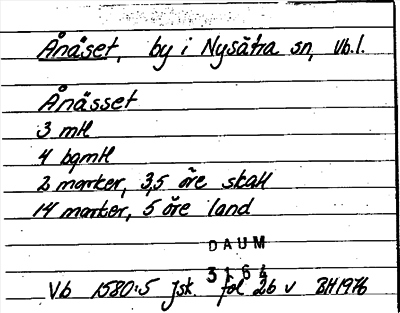 Ånäset, by i Nysätra sn, Vb.l.
Ånässet
3 mtl
4 bgmtl
2 marker, 3,5 öre skatt
14 marker, 5 öre land
DAUM
3164
Vb 1580:5 Jsk. fol 26 v BH1976